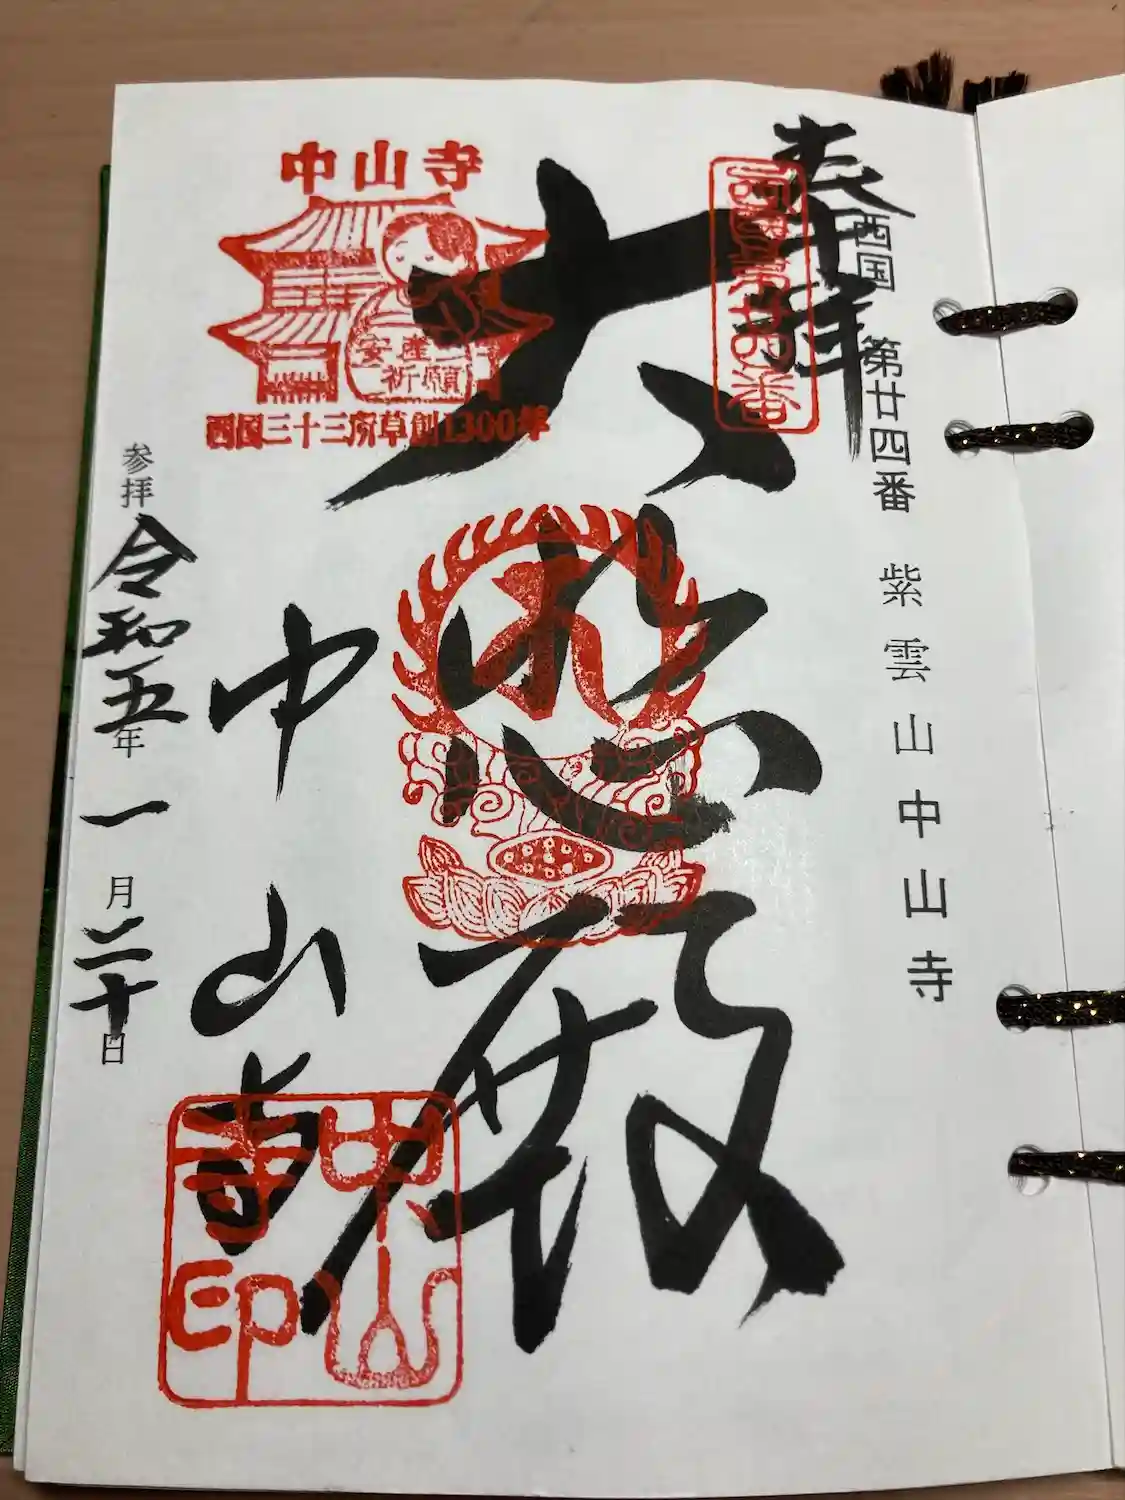 奉拝
西国 第廿四番 紫雲山中山寺
西国第廿四番
大悲殿
中山寺
安産
祈願
西国三十三所草創1300年
中山寺
中山寺印
参拝 令和五年一月二十日